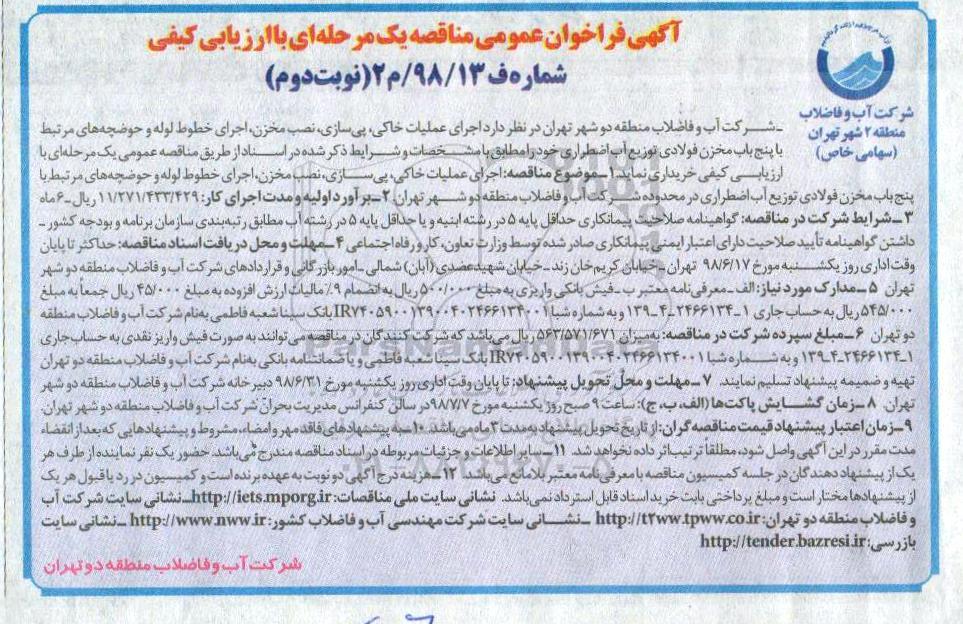 آگهی فراخوان عمومی مناقصه یک مرحله‌ای با ارزیابی کیفی
شماره ف ۹۸/۱۳/م۲ (نوبت دوم)
شرکت آب و فاضلاب
منطقه ۲ شهر تهران
(سهامی خاص)
ـ شرکت آب و فاضلاب منطقه دو شهر تهران در نظر دارد اجرای عملیات خاکی، پی‌سازی، نصب مخزن، اجرای خطوط لوله و حوضچه‌های مرتبط
با پنج باب مخزن فولادی توزیع آب اضطراری خود را مطابق با مشخصات و شرایط ذکر شده در اسناد از طریق مناقصه عمومی یک مرحله‌ای با
ارزیابی کیفی خریداری نماید. ۱ـ موضوع مناقصه: اجرای عملیات خاکی، پی‌سازی، نصب مخزن، اجرای خطوط لوله و حوضچه‌های مرتبط با
پنج باب مخزن فولادی توزیع آب اضطراری در محدوده شرکت آب و فاضلاب منطقه دو شهر تهران. ۲ـ برآورد اولیه و مدت اجرای کار: ۱۱/۲۷۱/۴۳۳/۴۲۹ ریال ـ ۶ ماه
۳ـ شرایط شرکت در مناقصه: گواهینامه صلاحیت پیمانکاری حداقل پایه ۵ در رشته ابنیه و یا حداقل پایه ۵ در رشته آب مطابق رتبه‌بندی سازمان برنامه و بودجه کشور ـ
داشتن گواهینامه تأیید صلاحیت دارای اعتبار ایمنی پیمانکاری صادر شده توسط وزارت تعاون، کار و رفاه اجتماعی ۴ـ مهلت و محل دریافت اسناد مناقصه: حداکثر تا پایان
وقت اداری روز یکشنبه مورخ ۹۸/۶/۱۷ تهران ـ خیابان کریم‌خان زند ـ خیابان شهید عضدی (آبان) شمالی ـ امور بازرگانی و قراردادهای شرکت آب و فاضلاب منطقه دو شهر
تهران ۵ـ مدارک مورد نیاز: الف ـ معرفی‌نامه معتبر ب ـ فیش بانکی واریزی به مبلغ ۵۰۰/۰۰۰ ریال به انضمام ۹٪ مالیات ارزش افزوده به مبلغ ۴۵/۰۰۰ ریال جمعاً به مبلغ
۵۴۵/۰۰۰ ریال به حساب جاری ۱ـ۲۴۶۶۱۳۴ـ۴ـ۱۳۹ و به شماره شبا IR۷۴۰۵۹۰۰۱۳۹۰۰۴۰۲۴۶۶۱۳۴۰۰۱ بانک سینا شعبه فاطمی به‌نام شرکت آب و فاضلاب منطقه
دو تهران ۶ـ مبلغ سپرده شرکت در مناقصه: به‌میزان ۵۶۳/۵۷۱/۶۷۱ ریال می‌باشد که شرکت کنندگان در مناقصه می‌توانند به صورت فیش واریز نقدی به حساب جاری
۱ـ۲۴۶۶۱۳۴ـ۴ـ۱۳۹ و به شماره شبا IR۷۴۰۵۹۰۰۱۳۹۰۰۴۰۲۴۶۶۱۳۴۰۰۱ بانک سینا شعبه فاطمی و یا ضمانتنامه بانکی به‌نام شرکت آب و فاضلاب منطقه دو تهران
تهیه و ضمیمه پیشنهاد تسلیم نمایند. ۷ـ مهلت و محل تحویل پیشنهاد: تا پایان وقت اداری روز یکشنبه مورخ ۹۸/۶/۳۱ دبیرخانه شرکت آب و فاضلاب منطقه دو شهر
تهران. ۸ـ زمان گشایش پاکت‌ها (الف، ب، ج): ساعت ۹ صبح روز یکشنبه مورخ ۹۸/۷/۷ در سالن کنفرانس مدیریت بحران شرکت آب و فاضلاب منطقه دو شهر تهران.
۹ـ زمان اعتبار پیشنهاد قیمت مناقصه گران: از تاریخ تحویل پیشنهاد به‌مدت ۳ ماه می‌باشد. ۱۰ـ به پیشنهادهای فاقد مهر و امضاء، مشروط و پیشنهادهایی که بعد از انقضاء
مدت مقرر در این آگهی واصل شود، مطلقاً ترتیب اثر داده نخواهد شد. ۱۱ـ سایر اطلاعات و جزئیات مربوطه در اسناد مناقصه مندرج می‌باشد. حضور یک نفر نماینده از طرف هر
یک از پیشنهاد دهندگان در جلسه کمیسیون مناقصه با معرفی‌نامه معتبر بلامانع می‌باشد. ۱۲ـ هزینه درج آگهی دو نوبت به عهده برنده است و کمیسیون در رد یا قبول هر یک
از پیشنهادها مختار است و مبلغ پرداختی بابت خرید اسناد قابل استرداد نمی‌باشد. نشانی سایت ملی مناقصات: http://iets.mporg.ir ـ نشانی سایت شرکت آب
و فاضلاب منطقه دو تهران: http://t۲ww.tpww.co.ir ـ نشانی سایت شرکت مهندسی آب و فاضلاب کشور: http://www.nww.ir ـ نشانی سایت
بازرسی: http://tender.bazresi.ir
شرکت آب و فاضلاب منطقه دو تهران